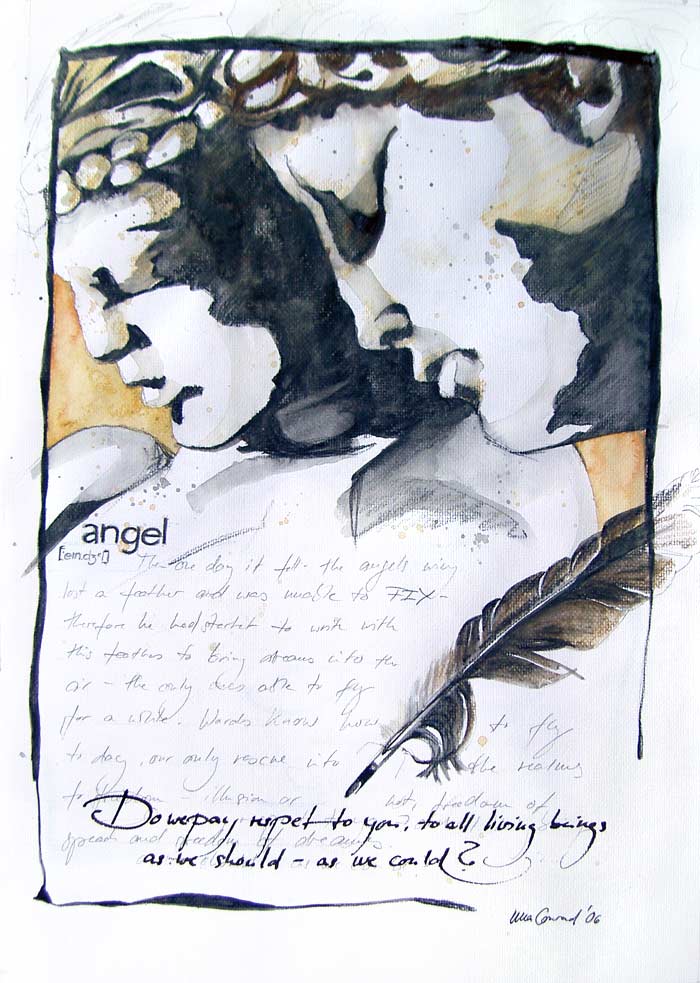 angel
The one day it fell - the angels wing
lost a feather and was unable to FIX -
therefore he had startet to write with
this feather to bring dreams into the
air - the only ones able to fly
for a while. Words know how to fly
to day, our only rescue into the realms
to - illusion or not, freedom of
Do we pay respet to you, to all living beings
speech and freedom of dreams.
as we should - as we could?
Conrad '06